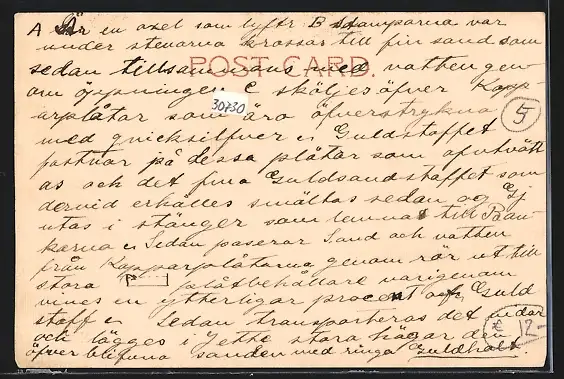 A Är en axel som lyftr B Stamparna var
under stenarna krossas till fin sand som
POST CARD.
sedan tillsammans med vatten gen
om öppningen C sköljes öfver Kopp-
arplåtar som äro öfverstrykna
30730
med quicksilfver o Guldstoffet
5
fastnar på dessa plåtar som afutvätt
as och det fina Guldsandstoffet som
dervid erhålles smältas sedan og Gj
utas i stänger som lemnas till Ban-
karna o Sedan paserar Sand och vatten
från Kopparplåtarna genom rör ut till
stora plåtbehållare varigenom
vines en ytterligar procent af Guld
stoff o Sedan transporteras det undan
12-
och lägges i Jette stora högar den
öfver blifvna sanden med ringa Guldhalt.